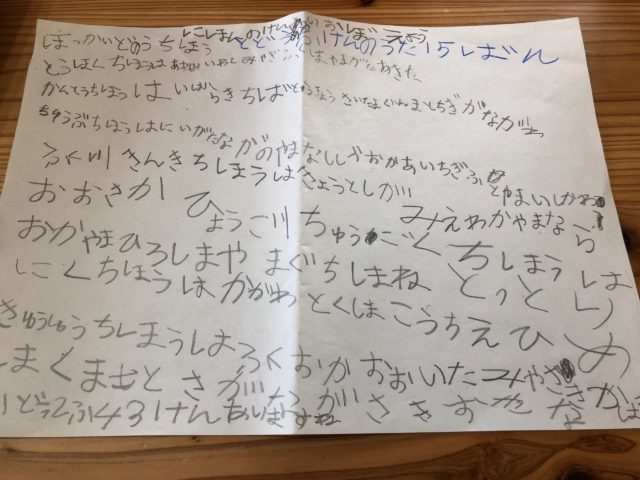 ほっかいどうちほう とどうふけんのうた15ばん
とうほくちほうは あおもり いわて みやぎ ふくしまやまがたあきた
かんとうちほうは いばらきちばとうきょうさいたまぐんまとちぎかながわ
ちゅうぶちほうはにいがたながのやまなししずおかあいちぎふ とやまいしかわ
ふくい きんきちほうはきょうとしが
おおさか ひょうご みえわかやまなら
ちゅうごくちほうは
おかやまひろしまやまぐちしまねとっとり
しこくちほうはかがわとくしまこうちえひめ
きゅうしゅうちほうはふくおかおおいたみやざきかご
しまくまもとさがながさきおきなわ
どう2ふ43けんありますね